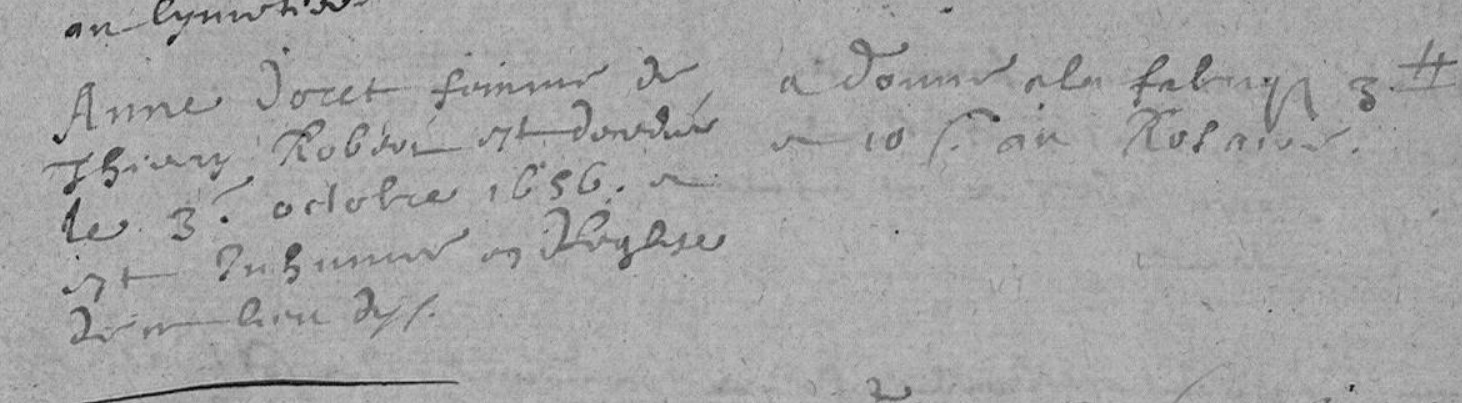 au Cymetiere
Anne Doret femme de
Thiery Robert est decedée
le 3.e octobre 1656. et
est Inhumée en L'eglise
de lieu dys.
a donné a la fabrique 3 #
et 10 s. au Rosaire.